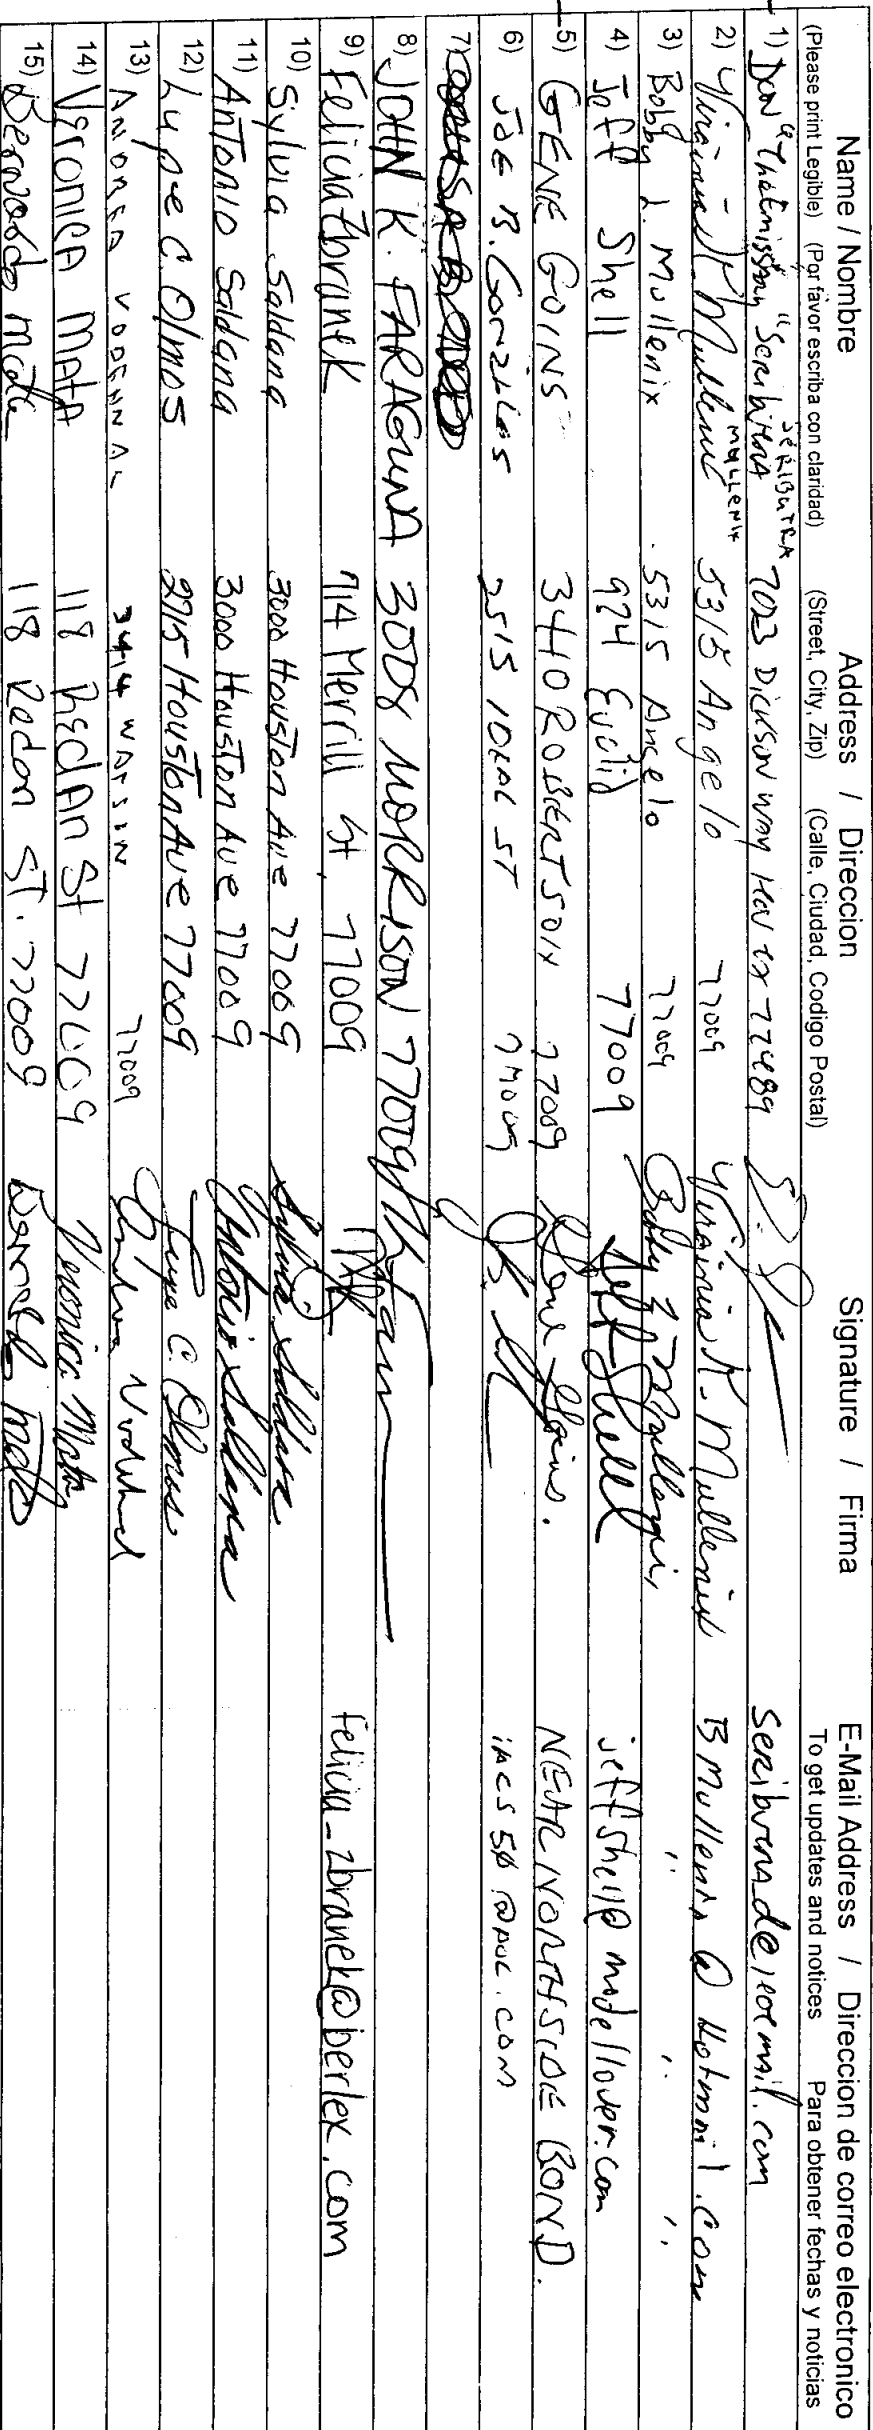 Name / Nombre Address / Direccion Signature / Firma E-Mail Address / Direccion de correo electronico
(Please print Legible) (Por favor escriba con claridad) (Street, City, Zip) (Calle, Ciudad, Codigo Postal) To get updates and notices Para obtener fechas y noticias
1) DON 7023 DICKSON WAY HOU TX 77489
2) Virginia K. Mullenix MULLENIX 5315 Angelo 77009 Virginia K. Mullenix BMullenix@Hotmail.com
3) Bobby L. Mullenix 5315 Angelo 77009 Bobby L Mullenix " " "
4) Jeff Shell 924 Euclid 77009 Jeff Shell jeffshell@modellover.com
5) GENE GOINS 3410 ROBERTSON 77009 Gene Goins. NEAR NORTHSIDE BOND.
6) JOE B. GONZALES 2515 IDEAL ST 77009
7)
8) JOHN K. FARAGUNA 3008 MORRISON 77009
9) Felicia Zbranek 714 Merrill St. 77009 felicia_zbranek@berlex.com
10) Sylvia Saldana 3000 Houston Ave 77009 Sylvia Saldana
11) Antonio Saldana 3000 Houston Ave 77009 Antonio Saldana
12) Lupe C. Olmos 2715 Houston Ave 77009 Lupe C. Olmos
13) ANDREA VODEHNAL 3414 WATSON 77009 Andrea Vodehnal
14) Veronica Mata 118 Redan St 77009 Veronica Mata
15) Bernardo Mata 118 Redan ST. 77009 Bernardo Mata